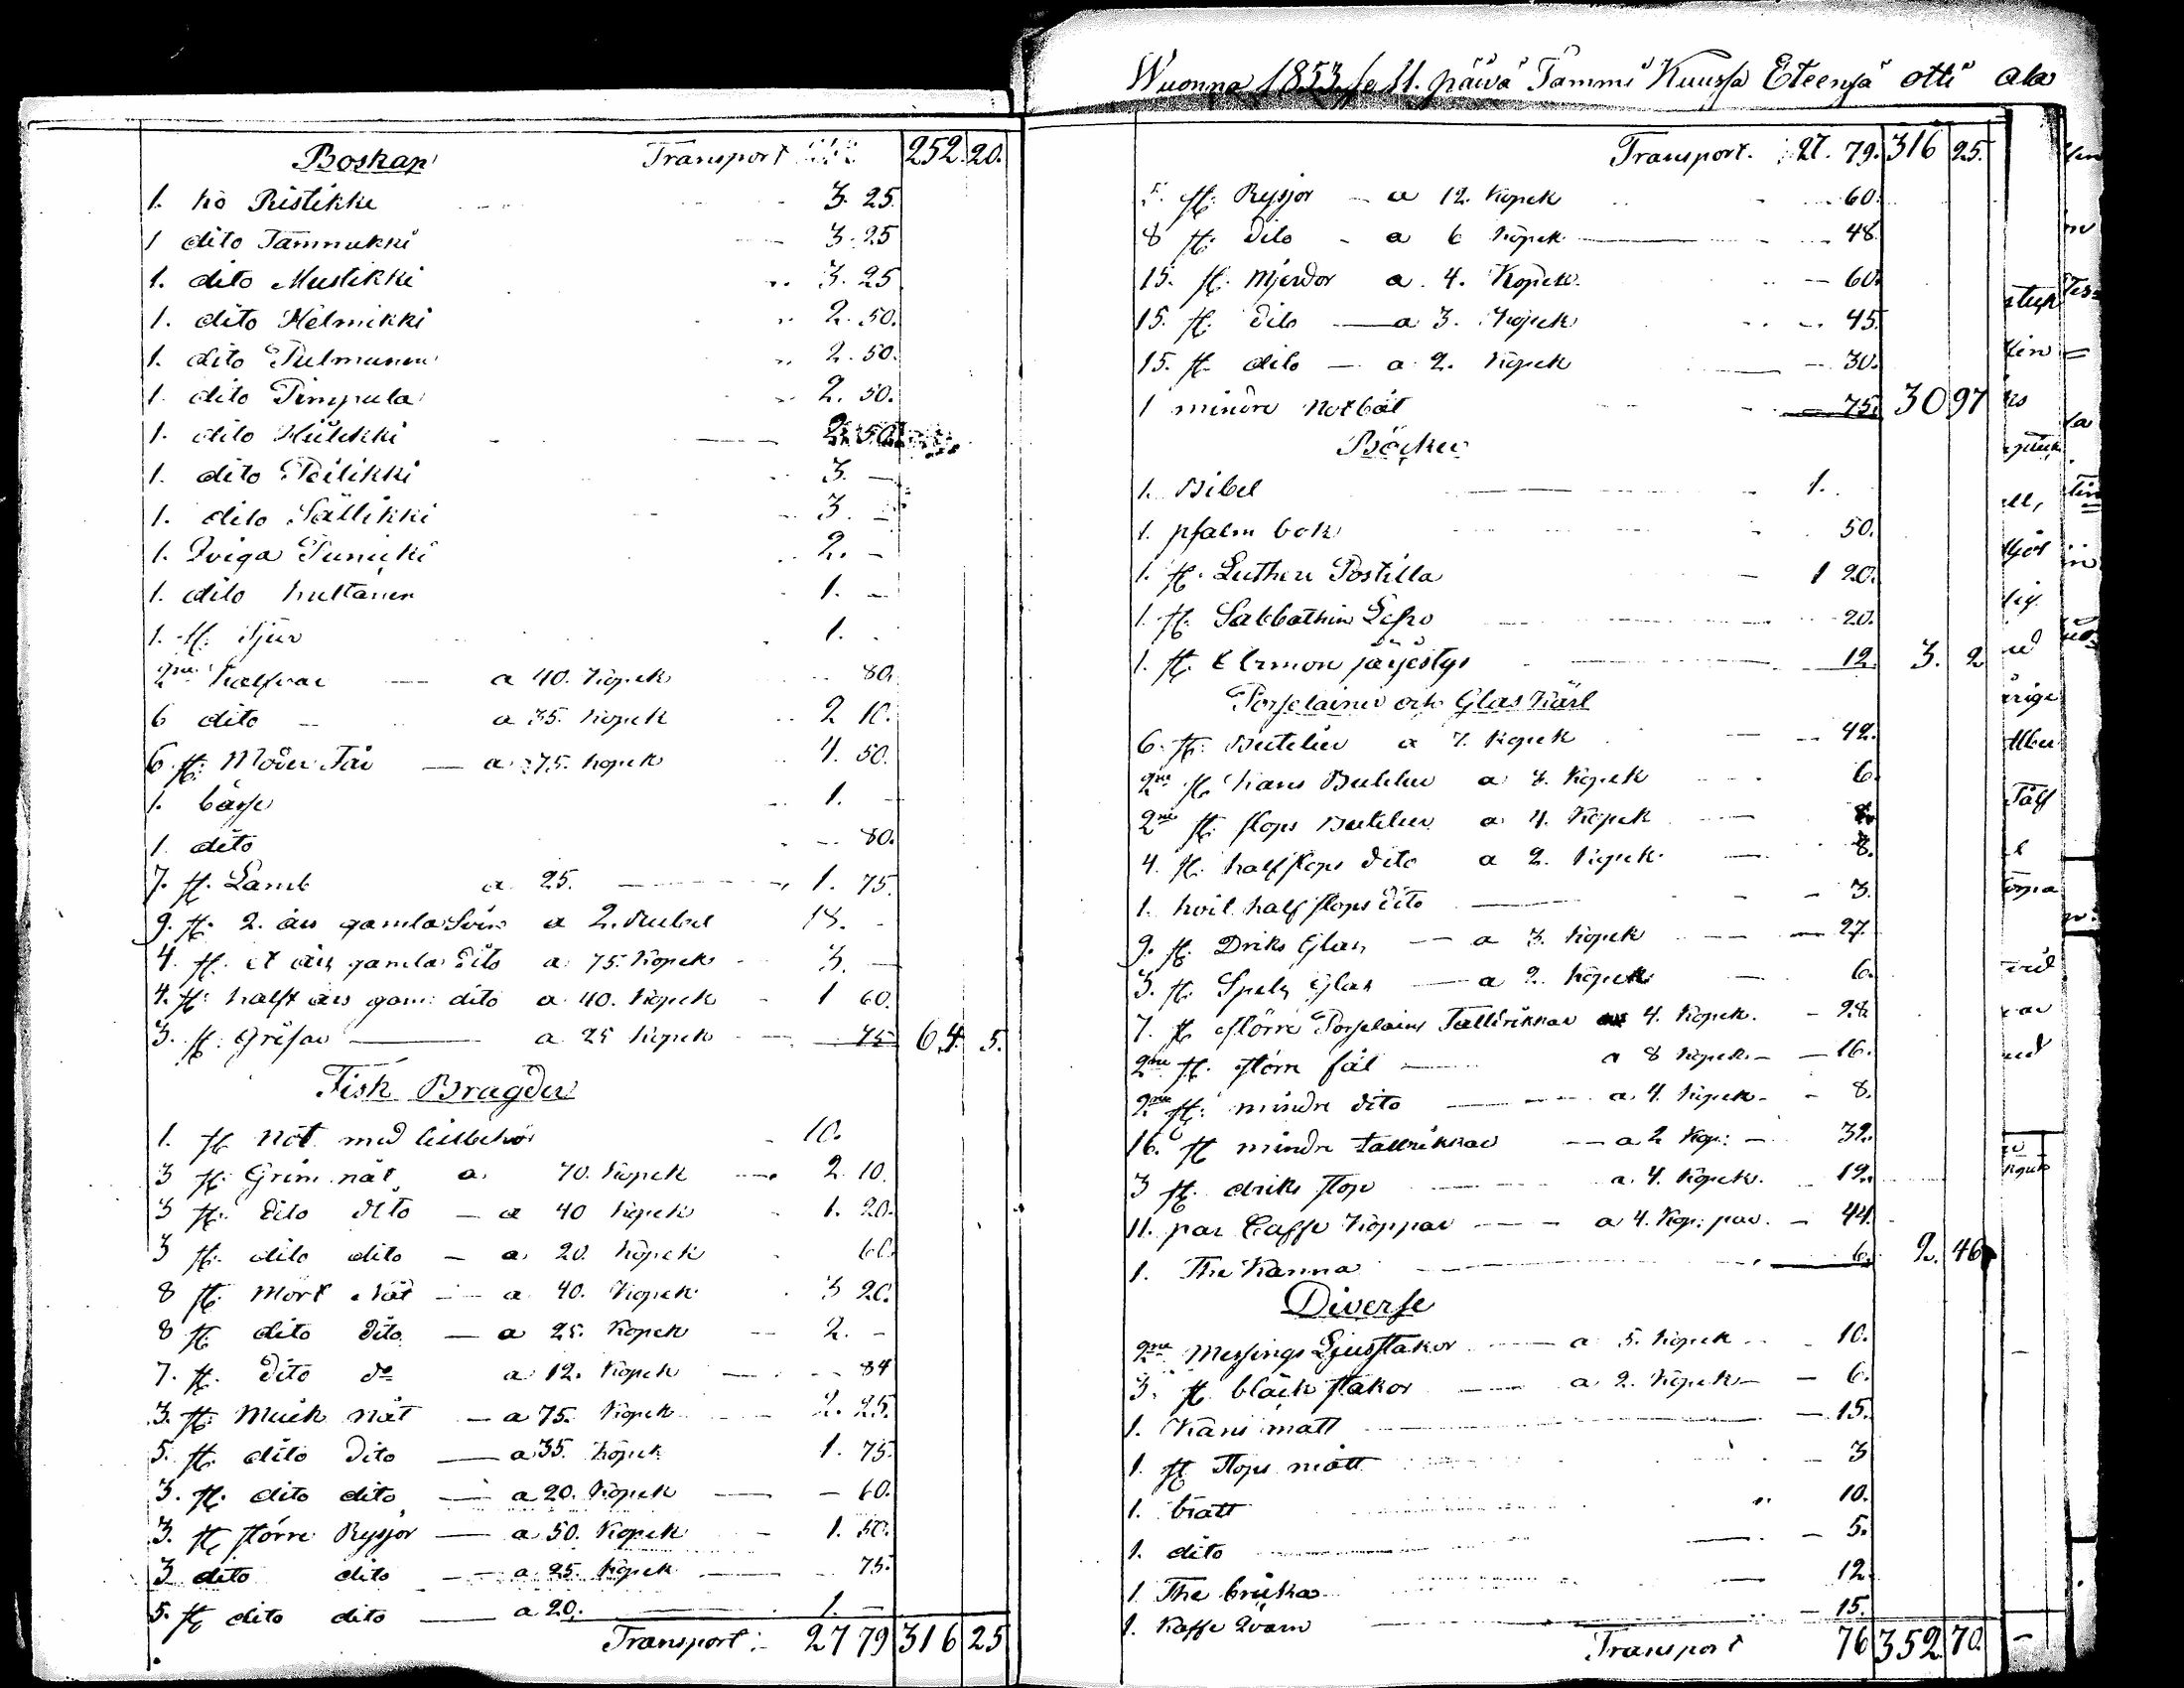 Boskap Transport 252 20.
1. ko Ristikki 3. 25.
1 dito Tammukki 3. 25
1. dito Mustikki 3. 25
1. dito Helmikki 2. 50.
1. dito Pulmunen 2. 50.
1. dito Pimpula 2. 50.
1. dito Hiilikki 2. 50.
1. dito Peilikki 3. —
1. dito Sällikki 3. —
1. Qviga Punicki 2. —
1. dito kultanen 1. —
1. st. tjur 1. -
2ne kalfvar — a 40. Kopek 80.
6 dito — a 35. Kopek 2 10.
6 st. Möder Får — a 75. kopek 4. 50.
1. bässe 1. —
1. dito 80.
7. st. Lamb a 25. — 1. 75.
9. st. 2. års gamla Svin a 2. Rubel 18. -
4. st. et års gamla dito a 75. Kopek 3. —
4. st. halft års gam: dito a 40. Kopek 1 60.
3. st. Grisar — a 25 Kopek — 75 64. 5.
Fisk Bragder
1. st not med tillbehör 10.
3 st. Grim nät a 70. Kopek 2. 10.
3 st. dito dito — a 40 Kopek 1. 20.
3 st. dito dito — a 20. Kopek 60.
8 st. Mört Nät — a 40. Kopek 3 20.
8 st. dito dito — a 25. Kopek — 2. -
7. st. dito do a 12. Kopek — 84
3. st. Muik nät — a 75. Kopek 2. 25.
5. st. dito dito — a 35. Kopek 1. 75.
3. st. dito dito — a 20. Kopek — 60.
3. st. större Rysjor — a 50. Kopek - 1. 50.
3 dito dito — a 25. Kopek — 75.
5. st dito dito — a 20. — 1. —
Transport: 27 79 316 25
Wuonna 1853. se 11. päivä Tammi Kuussa Eteensä otti ala
Transport. 27. 79. 316 25.
5. st. Rysjor — a 12. Kopek 60.
8 st. dito - a 6 Kopek — 48.
15. st. Mjerdor a 4. Kopek. — 60.
15. st. dito — a 3. Kopek 45.
15. st dito — a 2. Kopek — 30.
1 mindre Notbåt — 75. 30 97
Böcker
1. Bibel 1.
1. psalm bok 50.
1. st. Lutheri Postilla — 1 20.
1. st. Sabbathin Lepo 20.
1. st. Elämon järjestys 12 3. 2
Porselainer och Glas Kärl
6. st. Buteler a 7. Kopek — 42.
2ne st kans Buteler a 3. Kopek 6.
2ne st. stops Buteler a 4. Kopek — 8.
4. st. half stops dito a 2. Kopek — 8.
1. hvit half stops dito — 3.
9. st. Driks Glas — a 3. Kopek — 27.
3. st. Spets Glas — a 2. Kopek — 6.
7. st större Porselains Tallrikkar a 4. Kopek. - 28.
2ne st. större fat — a 8 Kopek — 16.
2ne st. mindre dito — a 4. Kopek - 8.
16. st mindre tallrikkar — a 2 Kop: — 32.
3 st. driks stop — a 4. Kopek. 12.
11. par Caffe Koppar — a 4. Kop: par. — 44.
1. The Kanna 6. 2. 46
Diverse
2ne Messings Ljusstakor — a 5. Kopek 10.
3. st bläck stakor — a 2. Kopek — 6.
1. Kans mått — 15.
1. st stops mått — 3
1. bratt 10.
1. dito — 5.
1 The bricka 12.
1. Kaffe Qvarn — 15.
Transport 76 352 70.